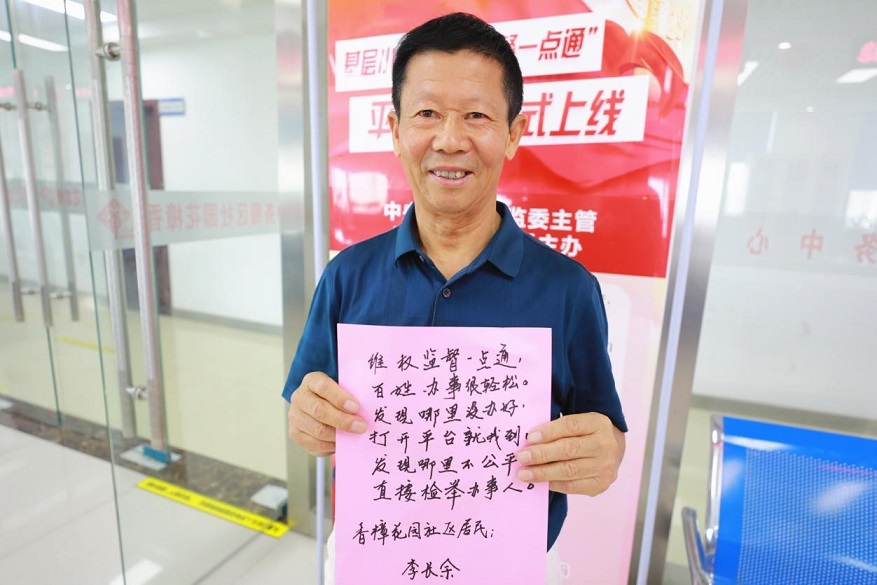 基层小
一点通”
平
式上线
中
监委主管
主办
香樟花园社区居务
务中心
维权监督一点通，
百姓办事很轻松。
发现哪里没办好，
打开平台就找到，
发现哪里不公平
直接检举办事人。
香樟花园社区居民；
李长余